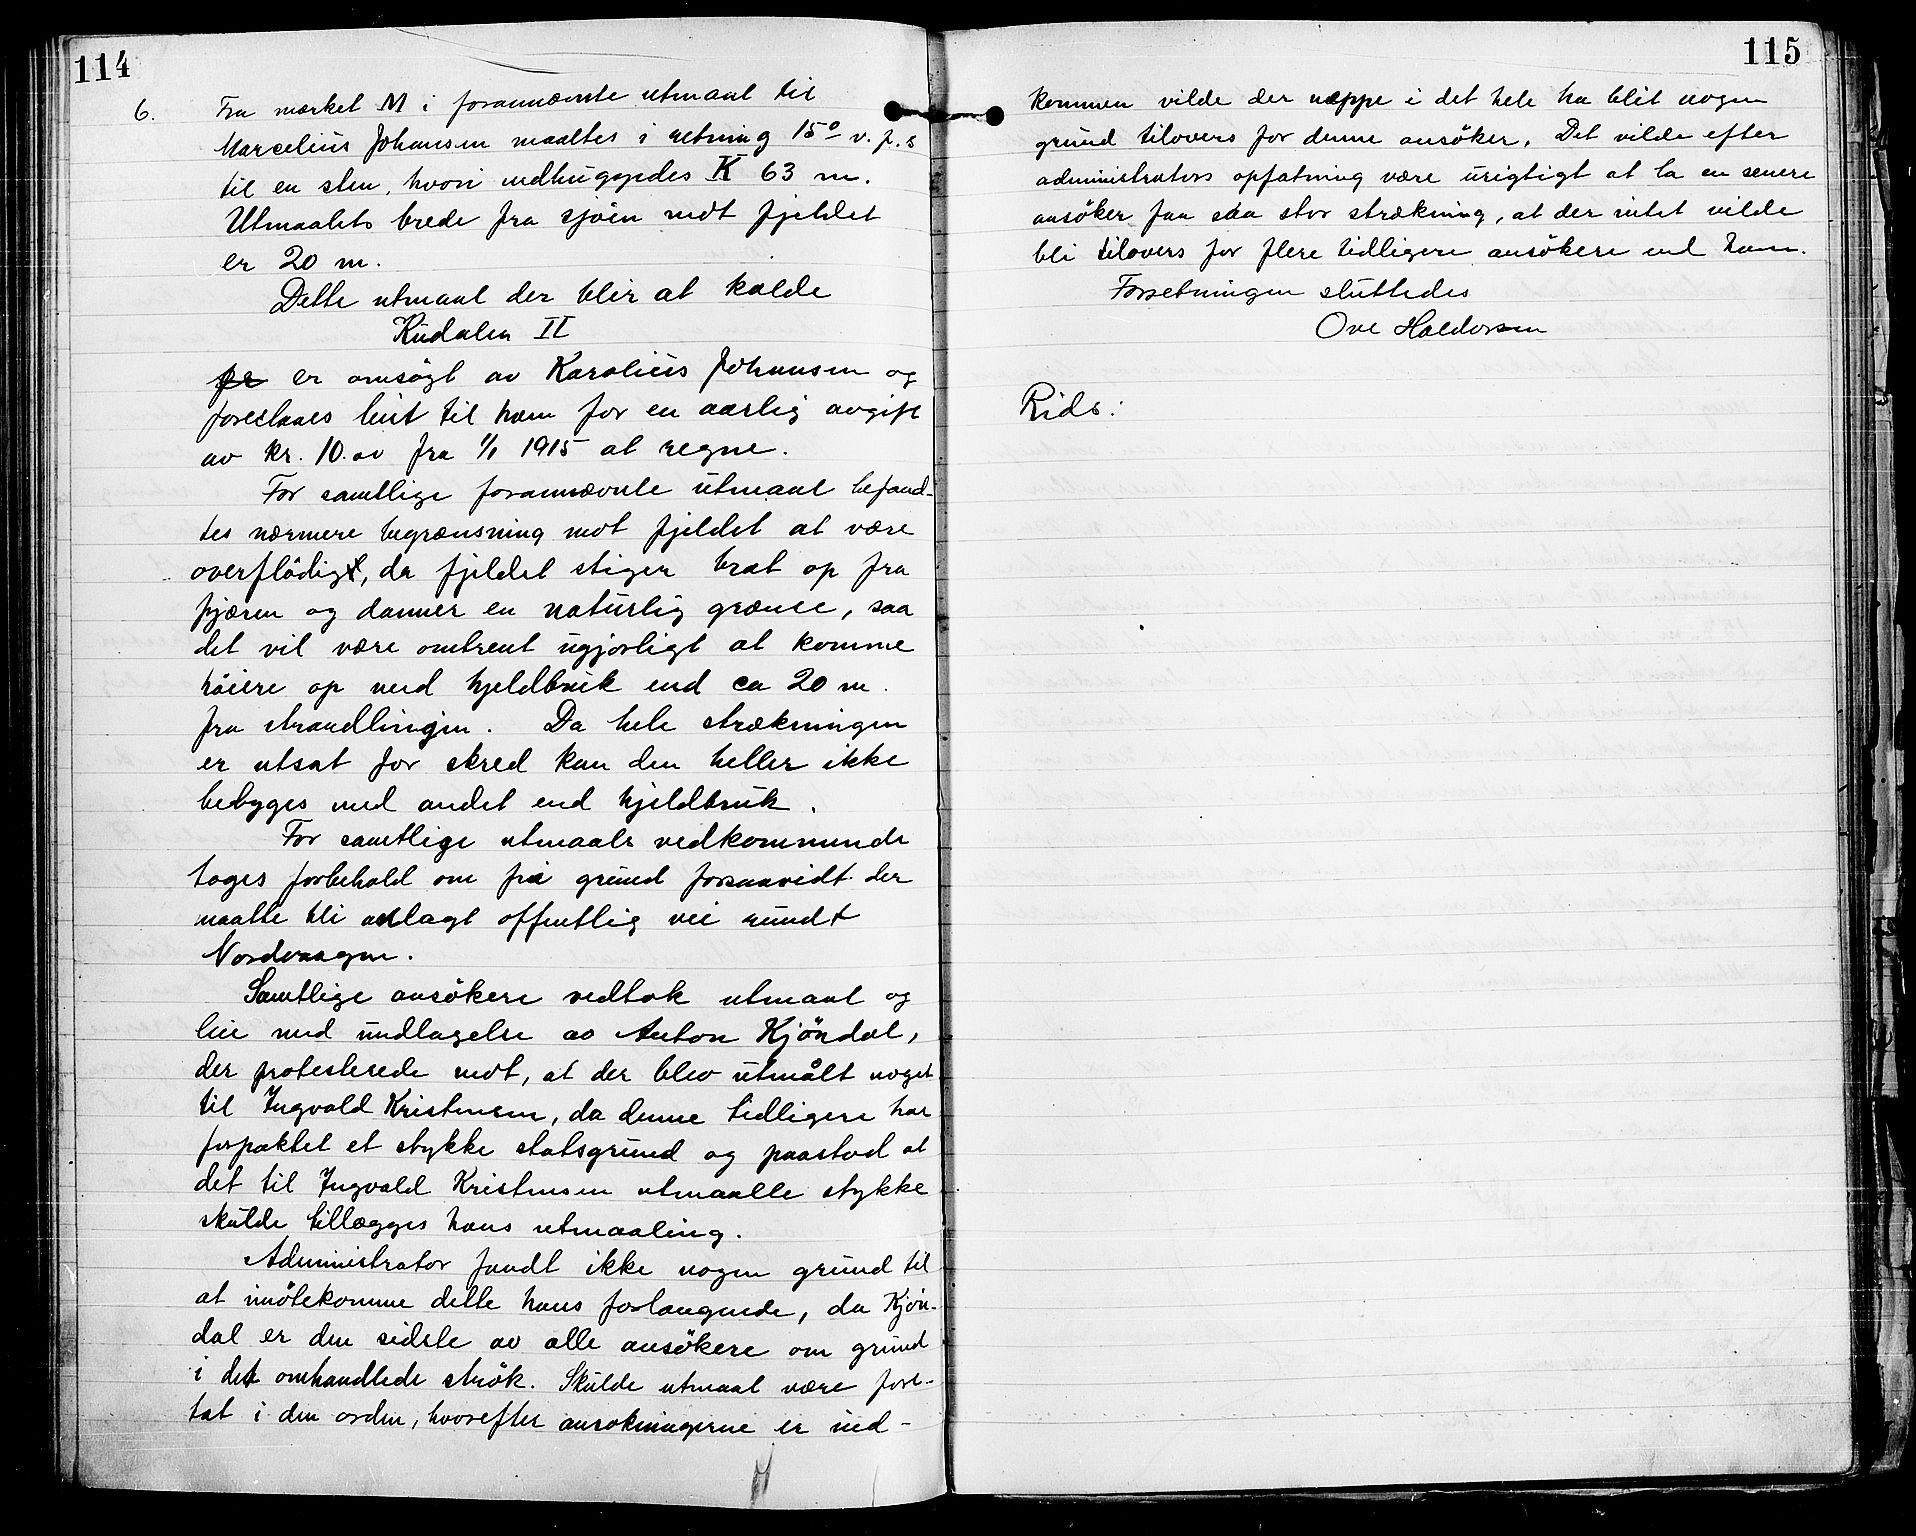 114
6. Fra mærket M i forannævnte utmaal til
Marcelius Johansen maaltes i retning 15° v. f. s
til en sten, hvori indhuggedes K 63 m.
Utmaalets brede fra sjöen mot fjeldet
er 20 m.
Dette utmaal der blir at kalde
Kudalen II
er ansögt av Karolius Johansen og
foreslaaes leiet til ham for en aarlig avgift
av kr. 10.00 fra 1/1 1915 at regne.
For samtlige forannævnte utmaal befand-
tes nærmere begrænsning mot fjeldet at være
overflödig, da fjeldet stiger brat op fra
fjæren og danner en naturlig grænse, saa
det vil være omtrent ugjörligt at komme
höiere op med hjeldbruk end ca 20 m.
fra strandlinjen. Da hele strækningen
er utsat for skred kan den heller ikke
bebygges med andet end hjeldbruk.
For samtlige utmaals vedkommende
tages forbehold om fri grund forsaavidt der
maatte bli anlagt offentlig vei rundt
Nordvaagen.
Samtlige ansökere vedtok utmaal og
leie med undtagelse av Anton Kjöndal,
der protesterede mot, at der blev utmålt noget
til Ingvald Kristensen, da denne tidligere har
forpaktet et stykke statsgrund og paastod at
det til Ingvald Kristensen utmaalte stykke
skulde tillægges hans utmaaling.
Administrator fandt ikke nogen grund til
at imötekomme dette hans forlangende, da Kjön-
dal er den sidste av alle ansökere om grund
i det omhandlede strök. Skulde utmaal være fore-
tat i den orden, hvorefter ansökningerne er ind-
115
kommen vilde der næppe i det hele ha blit nogen
grund tilovers for denne ansöker. Det vilde efter
administrators opfatning være urigtigt at la en senere
ansöker faa saa stor strækning, at der intet vilde
bli tilovers for flere tidligere ansökere end ham.
Forretningen sluttedes
Ove Haldorsen
Rids: